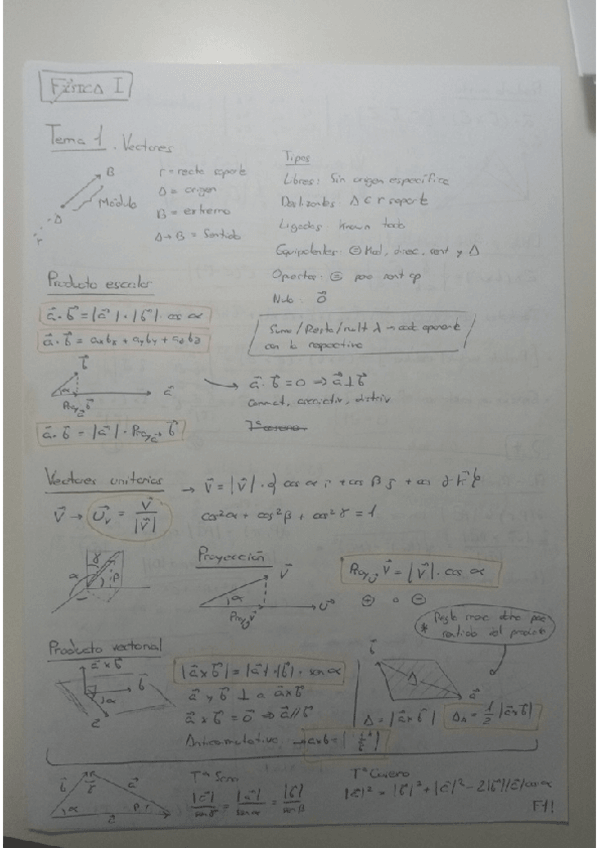 FÍSICA I
Tema 1. Vectores
B
Módulo
A
r
r = recta soporte
A = origen
B = extremo
A → B = Sentido
Tipos
Libres: Sin origen específico
Deslizantes: A ∈ r soporte
Ligados
Equipolentes: = Mod, direc, sent y A
Opuestos: = pero sent op
Nulo: 0⃗
Suma / Resta / mult λ → cada operante
con lo respectivo
Producto escalar
a⃗ · b⃗ = |a⃗| · |b⃗| · cos α
a⃗ · b⃗ = axbx + ayby + azbz
b⃗
α
a⃗
Proy a⃗ b⃗
a⃗ · b⃗ = |a⃗| · Proy a⃗ b⃗
→ a⃗ · b⃗ = 0 ⇒ a⃗ ⊥ b⃗
conmut, asociativ, distrib
Vectores unitarios
v⃗ → U⃗v = v⃗ / |v⃗|
→ v⃗ = |v⃗| · {cos α i⃗ + cos β j⃗ + cos γ k⃗}
cos²α + cos²β + cos²γ = 1
α γ β
Proyección
v⃗
α
U⃗
Proy U⃗ v⃗
Proy U⃗ v⃗ = |v⃗| · cos α
+ o −
Producto vectorial
a⃗ x b⃗
b⃗
α
a⃗
|a⃗ x b⃗| = |a⃗| · |b⃗| · sen α
a⃗ y b⃗ ⊥ a a⃗ x b⃗
a⃗ x b⃗ = 0⃗ ⇒ a⃗ // b⃗
Anticonmutativo
b⃗
A
a⃗
A = |a⃗ x b⃗|
A = 1/2 |a⃗ x b⃗|
b⃗
γ
a⃗
α
β
c⃗
Tª Seno
|c⃗| / sen γ = |a⃗| / sen α = |b⃗| / sen β
Tª Coseno
|a⃗|² = |b⃗|² + |c⃗|² − 2|b⃗||c⃗| cos α
F1!